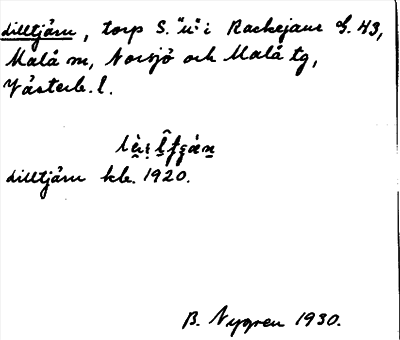 Lilltjärn, torp S. "u" i Rackejaur G. 43,
Malå sn, Norsjö och Malå tg,
Västerb. l.
Lilltjärn kb. 1920.
B. Nygren 1930.